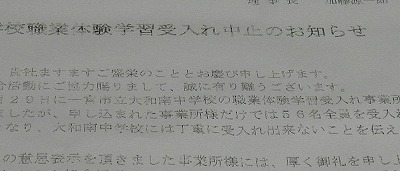 理 事 長　加藤源一郎
学校職業体験学習受入れ中止のお知らせ
貴社ますますご盛栄のこととお慶び申し上げます。
活動にご協力賜りまして、誠に有り難うございます。
月29日に一宮市立大和南中学校の職業体験学習受入れ事業所
ましたが、申し込まれた事業所様だけでは56名全員を受入れ
なり、大和南中学校には丁重に受入れ出来ないことを伝え
の意思表示を頂きました事業所様には、厚く御礼を申し上